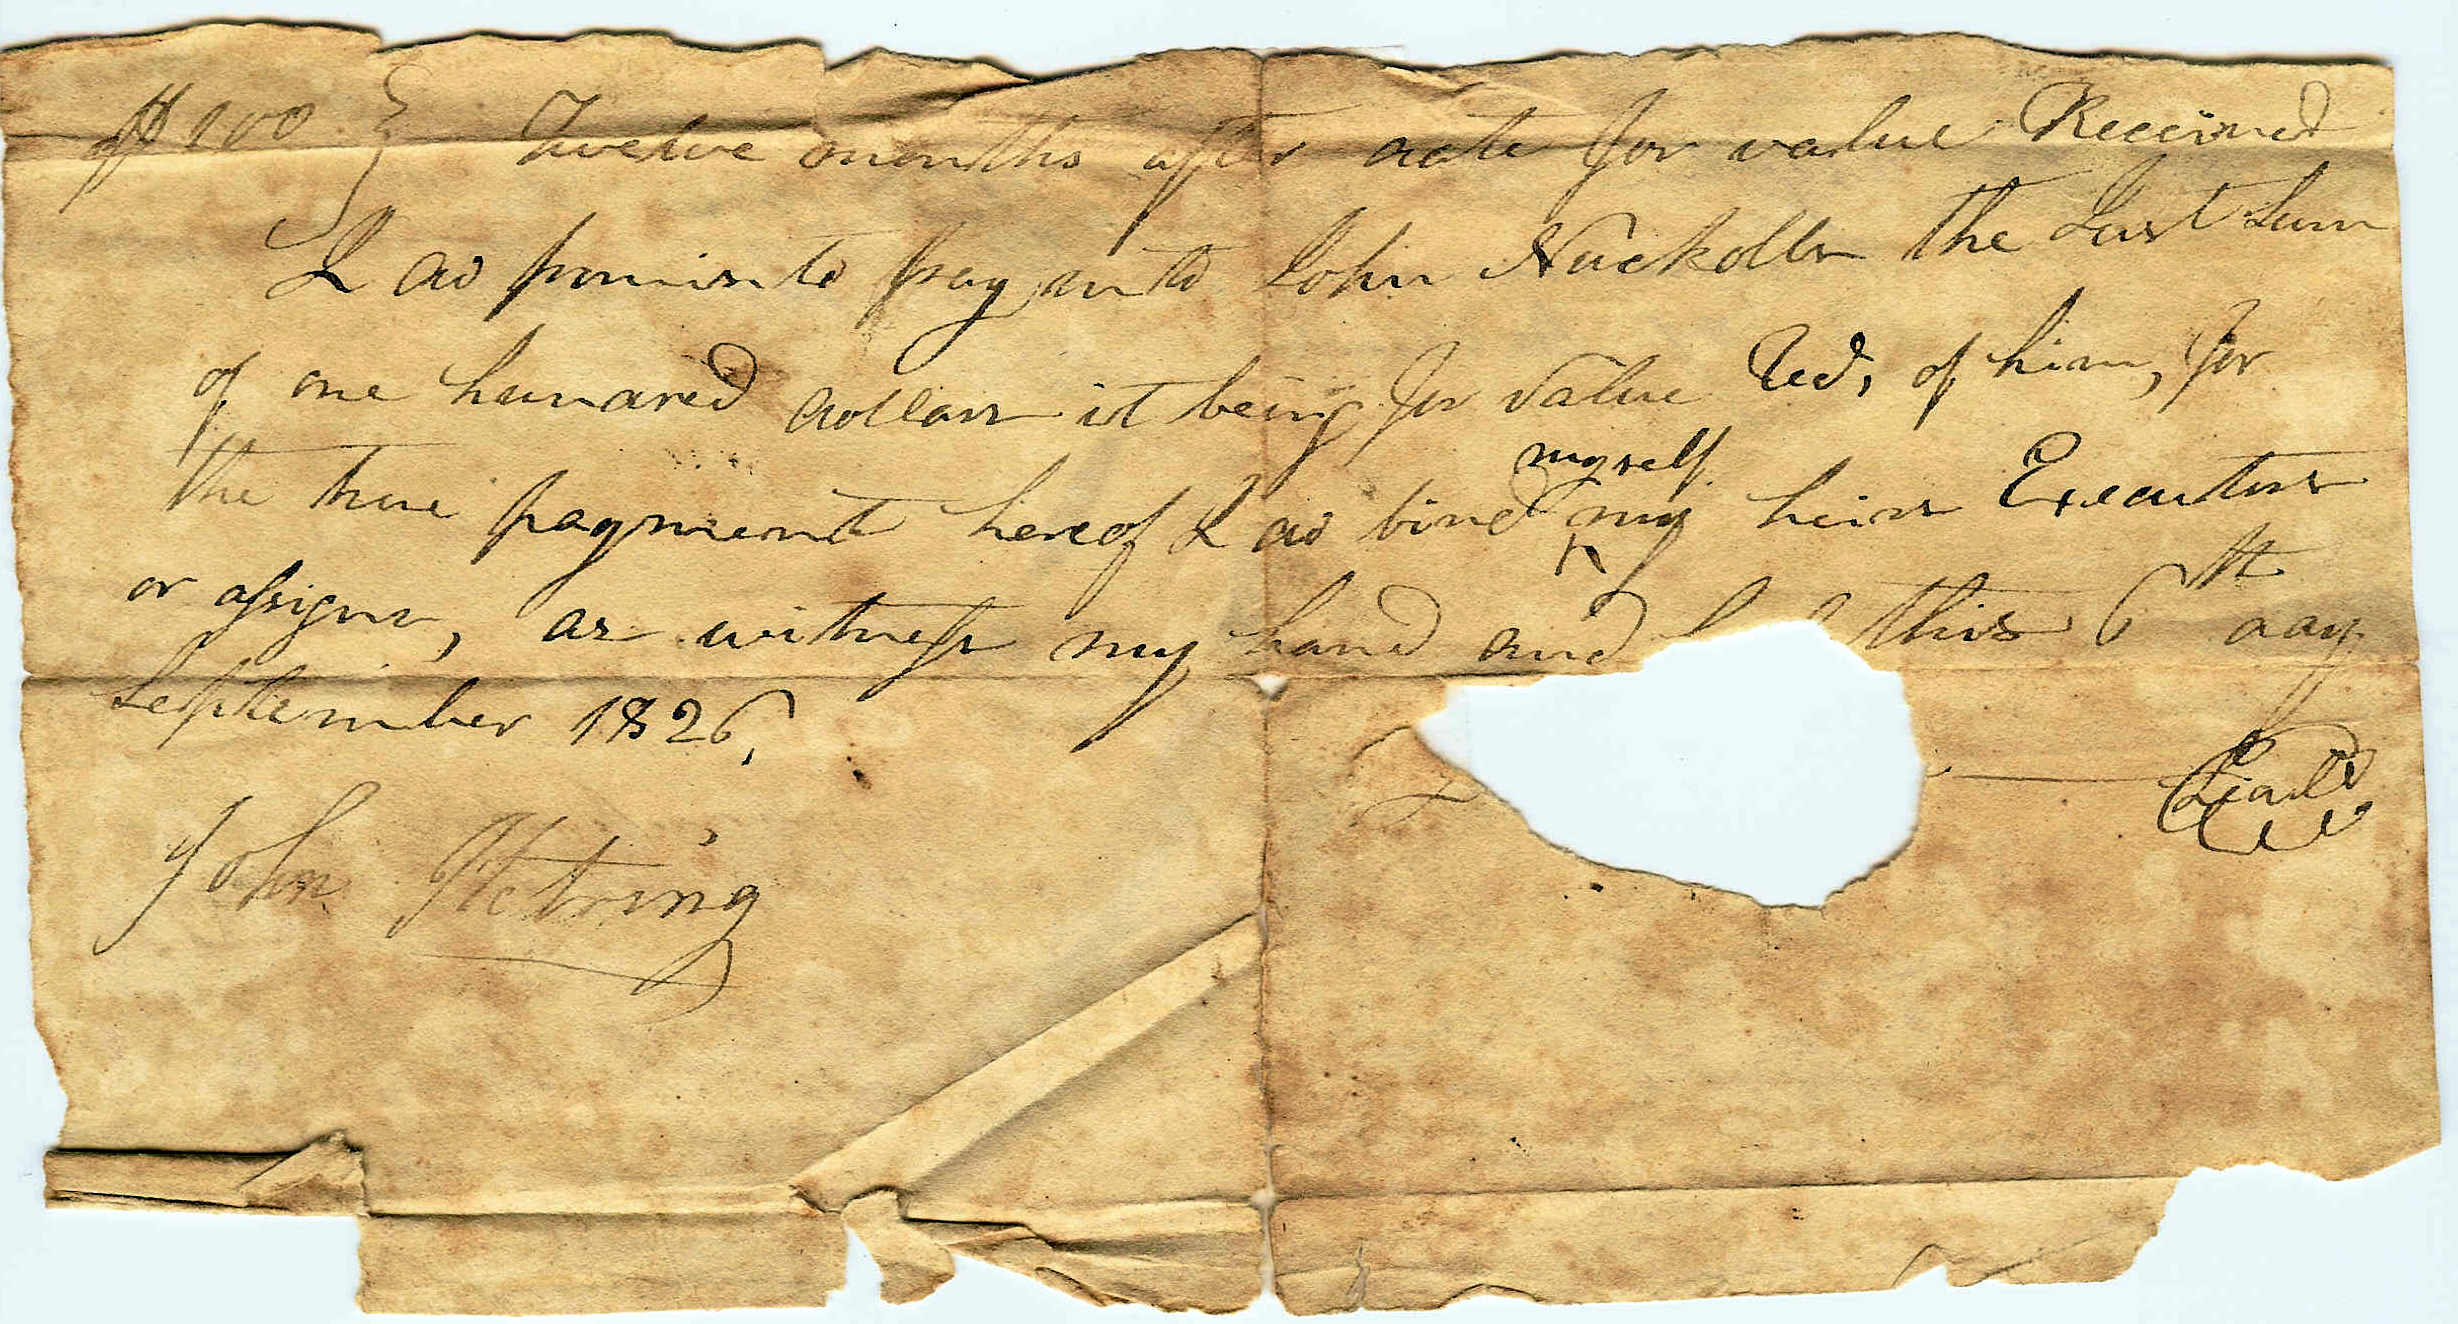 $100 } Twelve months after date for value Received
I do promis to pay unto John Nuckolls the Just Sum
of one hundred dollars it being for value Recd, of him, for
the true payment hereof I do bind myself my heirs Executors
or assigns, as witness my hand and this 6th day
September 1826,
Seald
John